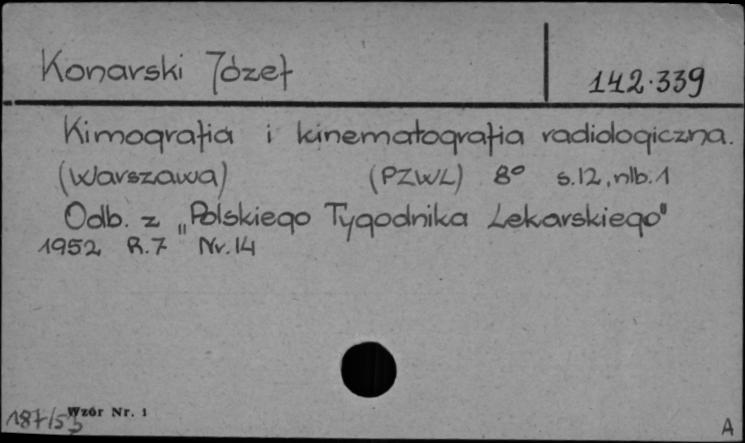 Konarski Józef
142.339
Kimografia i kinematografia radiologiczna.
(Warszawa) (PZWL) 8° s.12, nlb.1
Odb. z „Polskiego Tygodnika Lekarskiego"
1952 R.7 Nr.14
187/53
Wzór Nr. 1
A